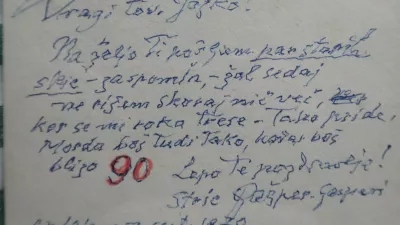 Dragi tov. Jaško!
Na željo Ti pošljem par starih
skic - za spomin, - žal sedaj
ne rišem skoraj nič več,
ker se mi roka trese - Tako pride,
Morda boš tudi Tako, kadar boš
blizo 90
Lepo Te pozdravlja!
Stric Gašper-Gašpari